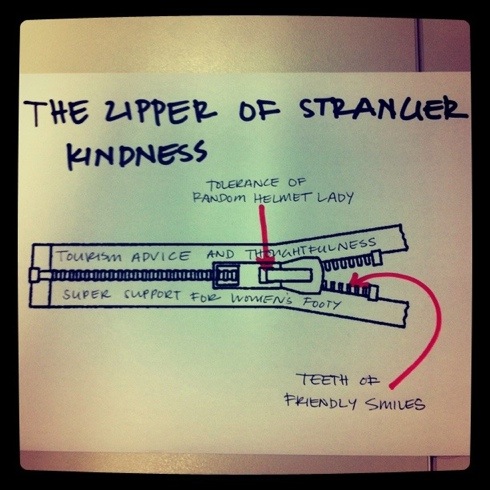 THE ZIPPER OF STRANGER
KINDNESS
TOLERANCE OF
RANDOM HELMET LADY
TOURISM ADVICE AND THOUGHTFULNESS
SUPER SUPPORT FOR WOMEN'S FOOTY
TEETH OF
FRIENDLY SMILES